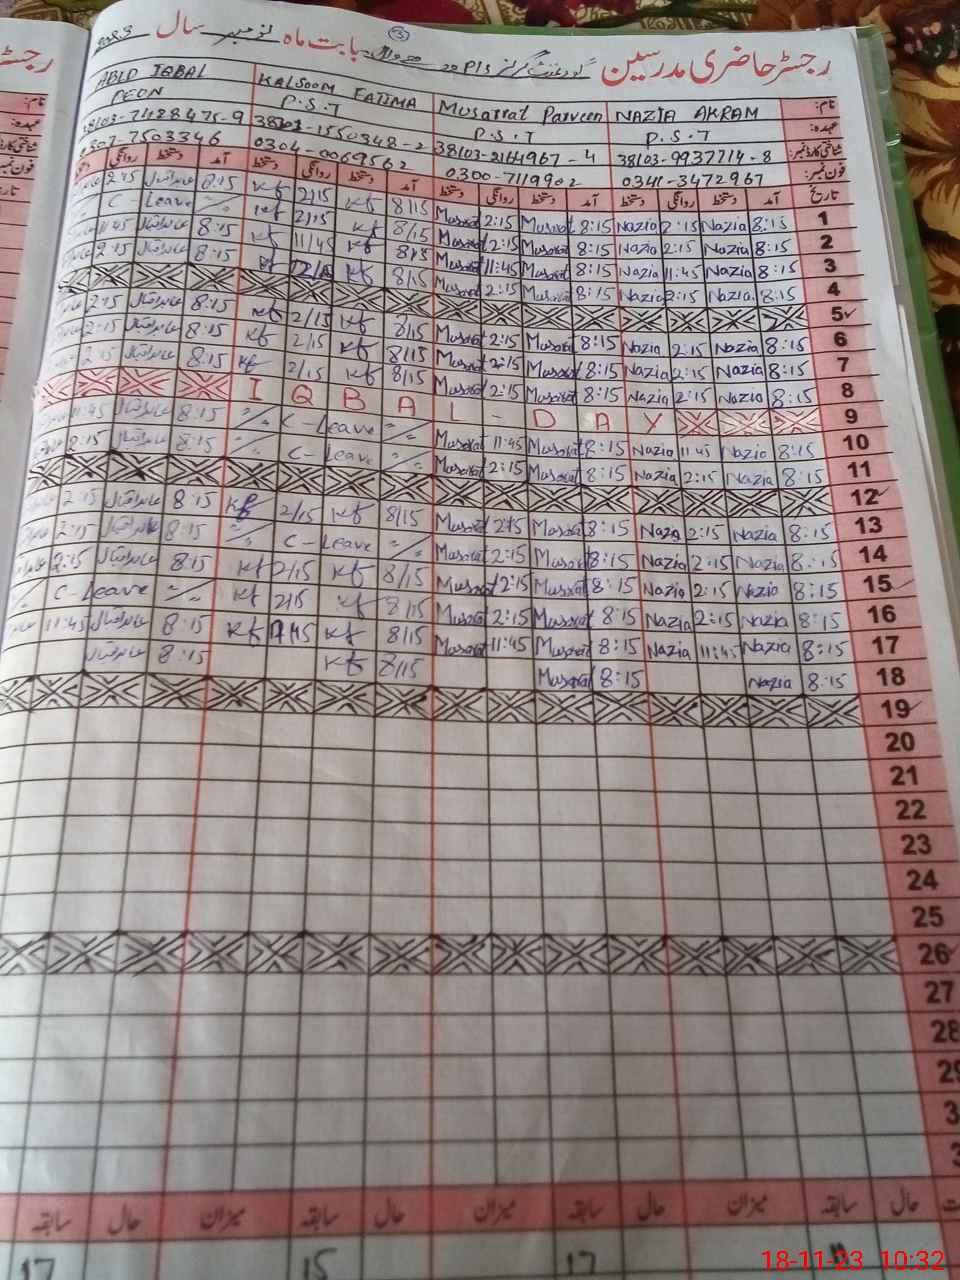 رجسٹر حاضری مدرسین گورنمنٹ گرلز بابت ماہ نومبر سال
3
نام: NAZIA AKRAM Musarrat Parveen KALSOOM FATIMA ABID IQBAL
عہدہ: P.S.T P.S.T P.S.T PEON
شناختی کارڈ نمبر: 38103-9937714-8 38103-2164967-4 38103-1550348-2 38103-7428475-9
فون نمبر: 0341-3472967 0300-7119902 0304-0069562 0307-7503346
تاریخ آمد دستخط روانگی دستخط آمد دستخط روانگی دستخط آمد دستخط روانگی دستخط آمد دستخط روانگی
1 8:15 Nazia 2:15 Nazia 8:15 Musarat 2:15 Musarat 8/15 Kf 2/15 Kf 8:15 عابد اقبال 2:15
2 8:15 Nazia 2:15 Nazia 8:15 Musarat 2:15 Musarat 8/15 Kf 2/15 Kf C-Leave
3 8:15 Nazia 11:45 Nazia 8:15 Musarat 11:45 Musarat 8/15 Kf 11/45 Kf 8:15 عابد اقبال 11:45
4 8:15 Nazia 2:15 Nazia 8:15 Musarat 2:15 Musarat 8/15 Kf Kf 8:15 عابد اقبال 2:15
5
6 8:15 Nazia 2:15 Nazia 8:15 Musarat 2:15 Musarat 8/15 Kf 2/15 Kf 8:15 عابد اقبال 2:15
7 8:15 Nazia 2:15 Nazia 8:15 Musarat 2:15 Musarat 8/15 Kf 2/15 Kf 8:15 عابد اقبال 2:15
8 8:15 Nazia 2:15 Nazia 8:15 Musarat 2:15 Musarat 8/15 Kf 2/15 Kf 8:15 عابد اقبال 2:15
9 IQBAL - DAY
10 8:15 Nazia 11:45 Nazia 8:15 Musarat 11:45 Musarat C-Leave 8:15 عابد اقبال 11:45
11 8:15 Nazia 2:15 Nazia 8:15 Musarat 2:15 Musarat C-Leave 8:15 عابد اقبال 2:15
12
13 8:15 Nazia 2:15 Nazia 8:15 Musarat 2:15 Musarat 8/15 Kf 2/15 Kf 8:15 عابد اقبال 2:15
14 8:15 Nazia 2:15 Nazia 8:15 Musarat 2:15 Musarat C-Leave 8:15 عابد اقبال 2:15
15 8:15 Nazia 2:15 Nazia 8:15 Musarat 2:15 Musarat 8/15 Kf 2/15 Kf 8:15 عابد اقبال 2:15
16 8:15 Nazia 2:15 Nazia 8:15 Musarat 2:15 Musarat 8/15 Kf 2/15 Kf C-Leave
17 8:15 Nazia 11:45 Nazia 8:15 Musarat 11:45 Musarat 8/15 Kf Kf 8:15 عابد اقبال 11:45
18 8:15 Nazia 8:15 Musarat 8/15 Kf 8:15 عابد اقبال
19
20
21
22
23
24
25
26
27
28
حال سابقہ میزان حال سابقہ میزان حال سابقہ میزان حال سابقہ
17 15 17
18-11-23 10:32